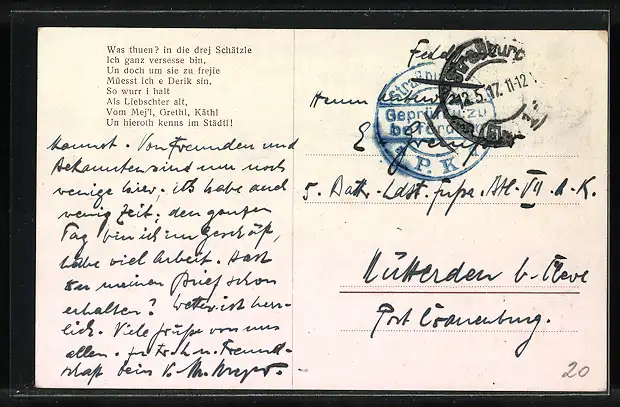 Was thuen? in die drej Schätzle
Ich ganz versesse bin,
Un doch um sie zu frejie
Müesst ich e Derik sin.
So wurr i halt
Als Liebschter alt,
Vom Mej'l, Grethl, Käthl
Un hieroth kenns im Städtl!
kannst. Von Freunden und
Bekannten sind nur noch
wenige hier; ich habe auch
wenig Zeit; den ganzen
Tag bin ich im Geschäft,
habe viel Arbeit. Hast
Du meinen Brief schon
erhalten? Wetter ist herr-
lich. Viele Grüße von uns
allen. in Freund-
schaft Dein
Feld
Straßburg
12.5.17. 11-12
Straßb
Geprüft zu
beförd
P. K.
Herrn
E.
5. Batt. Ldst. Abt. VII A. K.
Nütterden b. Cleve
Post Cranenburg.
20